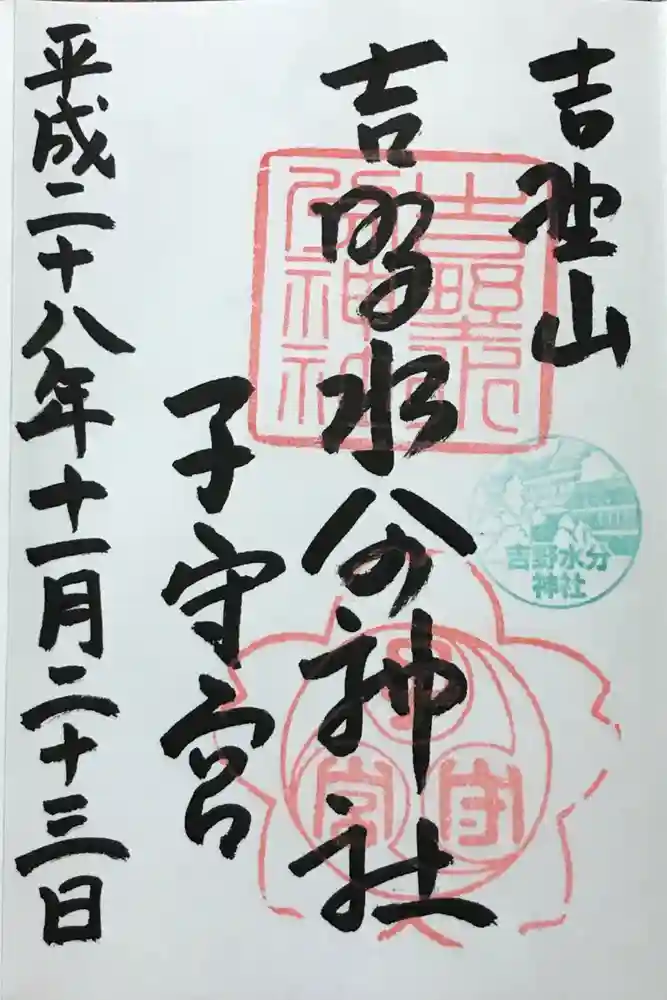 吉野山
吉野水分神社
子守宮
平成二十八年十一月二十三日
吉野水分神社
子守宮
吉野水分
神社